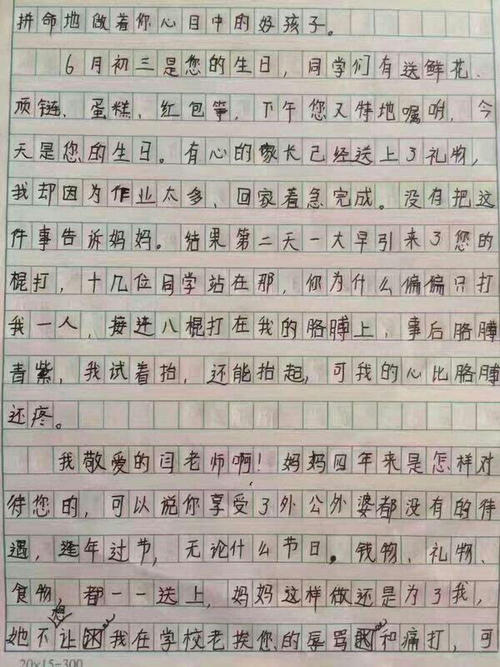 拼命地做着你心目中的好孩子。
6月初三是您的生日，同学们有送鲜花、
项链、蛋糕、红包等，下午您又特地嘱咐，今
天是您的生日。有心的家长已经送上了礼物，
我却因为作业太多、回家着急完成。没有把这
件事告诉妈妈。结果第二天一大早引来了您的
棍打，十几位同学站在那，你为什么偏偏只打
我一人，接连八棍打在我的胳膊上，事后胳膊
青紫，我试着抬，还能抬起，可我的心比胳膊
还疼。
我敬爱的闫老师啊！妈妈四年来是怎样对
待您的，可以说你享受了外公外婆都没有的待
遇，逢年过节，无论什么节日。钱物、礼物、
食物，都一一送上，妈妈这样做还是为了我，
她不想让我在学校老挨您的辱骂和痛打，可
20×15=300